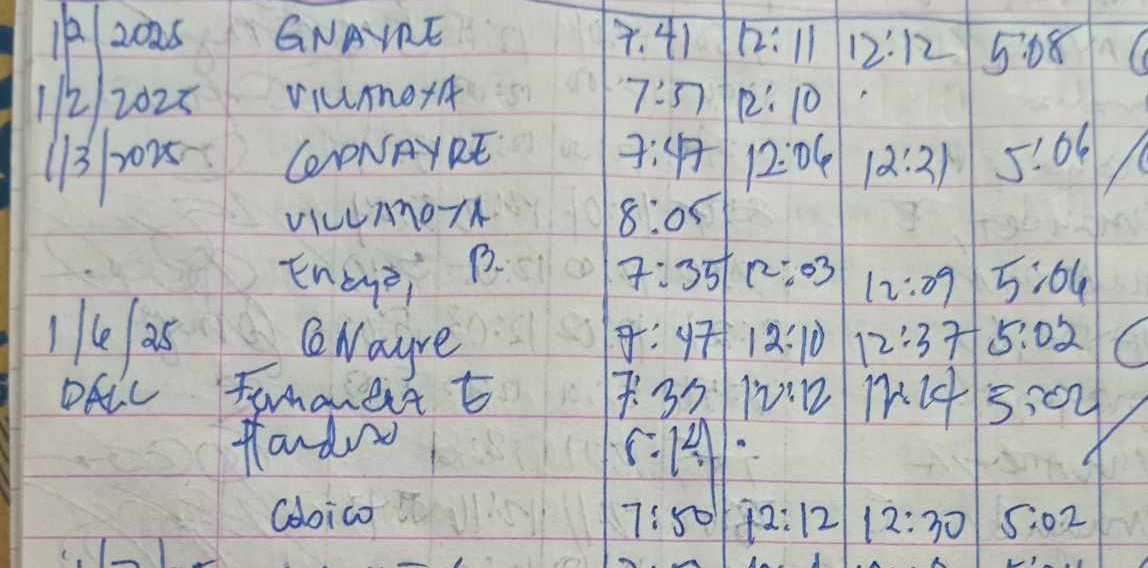 1/2/2025 GNAYRE 7:41 12:11 12:12 5:08
1/2/2025 VILLANOYA 7:57 12:10
1/3/2025 7:47 12:06 12:21 5:06
VILLANOYA 8:05
B. 7:35 12:03 12:09 5:06
1/6/25 GNayre 7:47 12:10 12:37 5:02
Fernandez E 12:12 12:14 5:02
Cabico 7:50 12:12 12:30 5:02